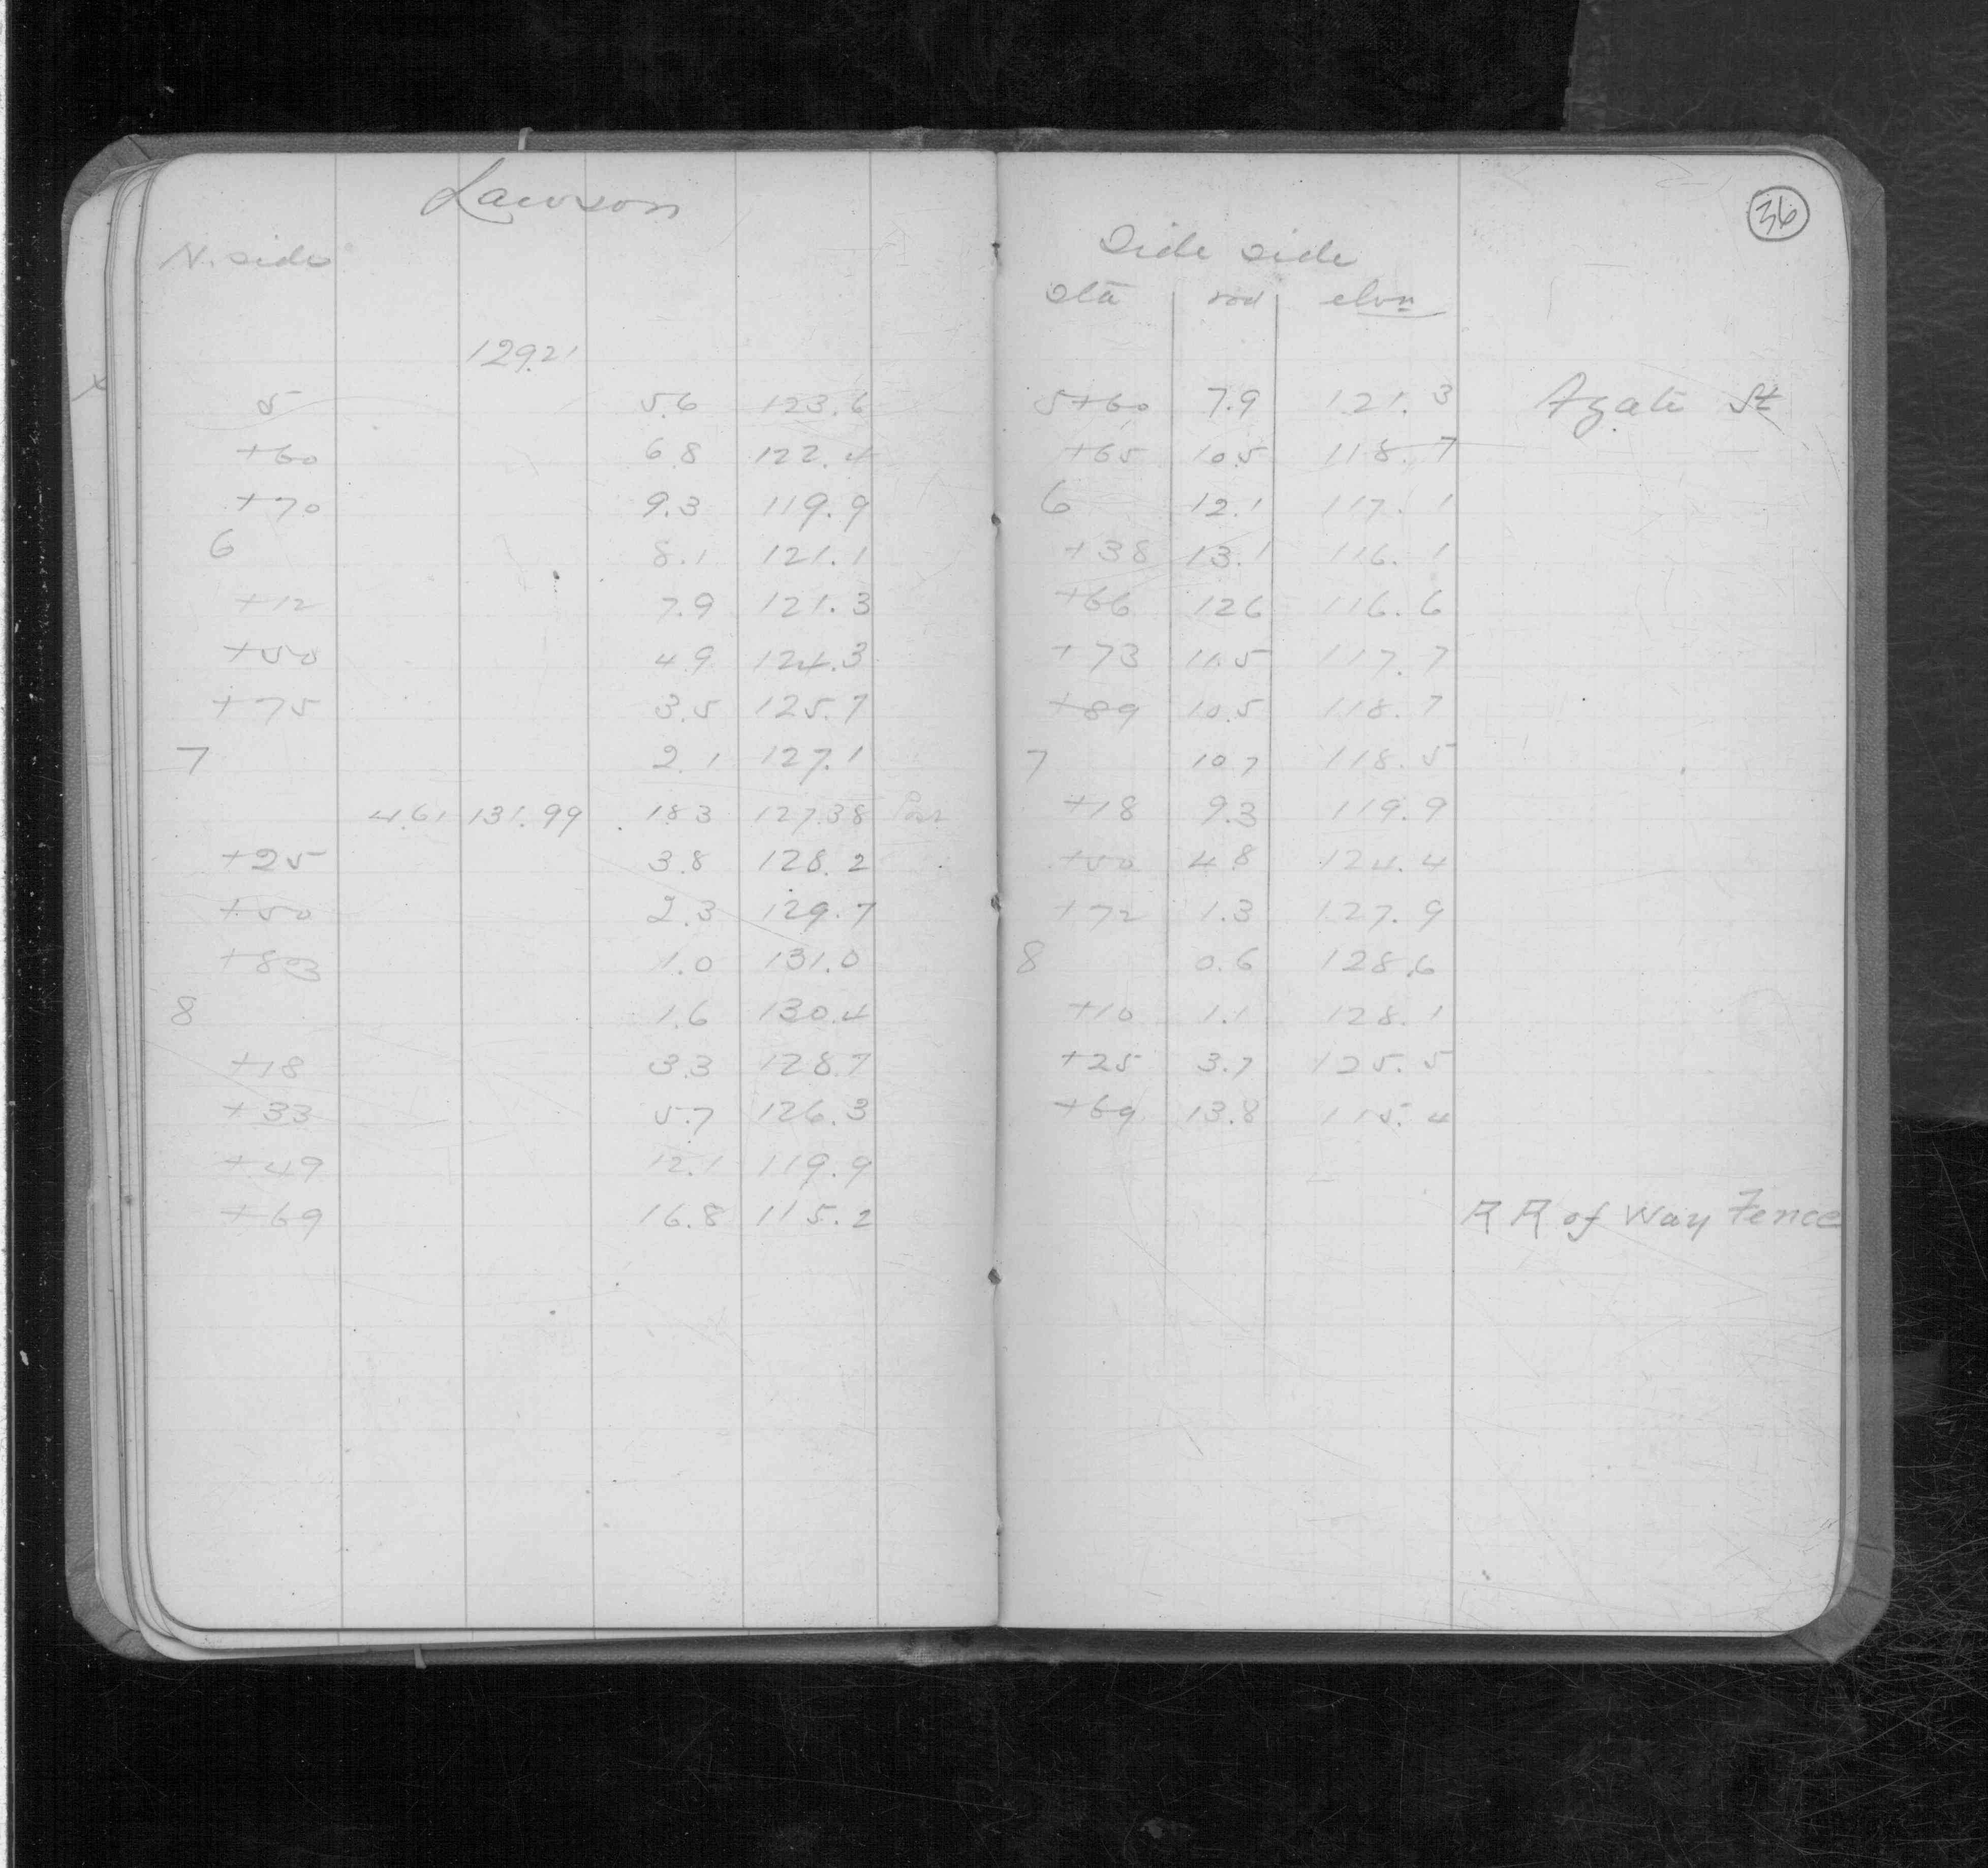 Lawson
N. side
129.21
5 5.6 123.6
+60 6.8 122.4
+70 9.3 119.9
6 8.1 121.1
+12 7.9 121.3
+50 4.9 124.3
+75 3.5 125.7
7 2.1 127.1
4.61 131.99 1.83 127.38
+25 3.8 128.2
+50 2.3 129.7
+83 1.0 131.0
8 1.6 130.4
+18 3.3 128.7
+33 5.7 126.3
+49 12.1 119.9
+69 16.8 115.2
36
Side side
sta rod elvn
5+60 7.9 121.3 Agate St
+65 10.5 118.7
6 12.1 117.1
+38 13.1 116.1
+66 126 116.6
+73 11.5 117.7
+89 10.5 118.7
7 107 118.5
+18 9.3 119.9
+50 4.8 124.4
+72 1.3 127.9
8 0.6 128.6
+10 1.1 128.1
+25 3.7 125.5
+69 13.8 115.4
R R of Way Fence